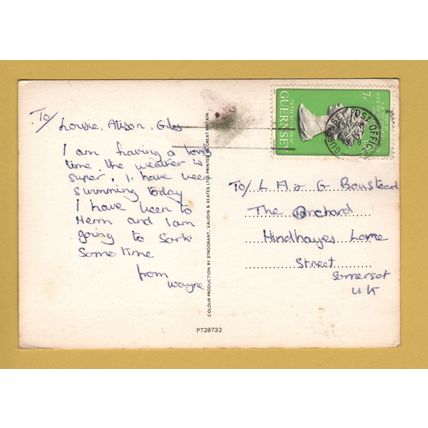 To/
Louise, Alison, Giles
I am having a lovely
time the weather is
super. I have been
swimming today
I have been to
Herm and I am
going to Sark
Sometime
from
Wayne
COLOUR PRODUCTION BY STADDART, VAUDIN & KEATES LTD. PRINTED IN GREAT BRITAIN
PT28732
7
GUERNSEY
POST OFFICE
To/ L A & G Banstead
The Orchard
Hindhayes Lane
Street
Somerset
UK